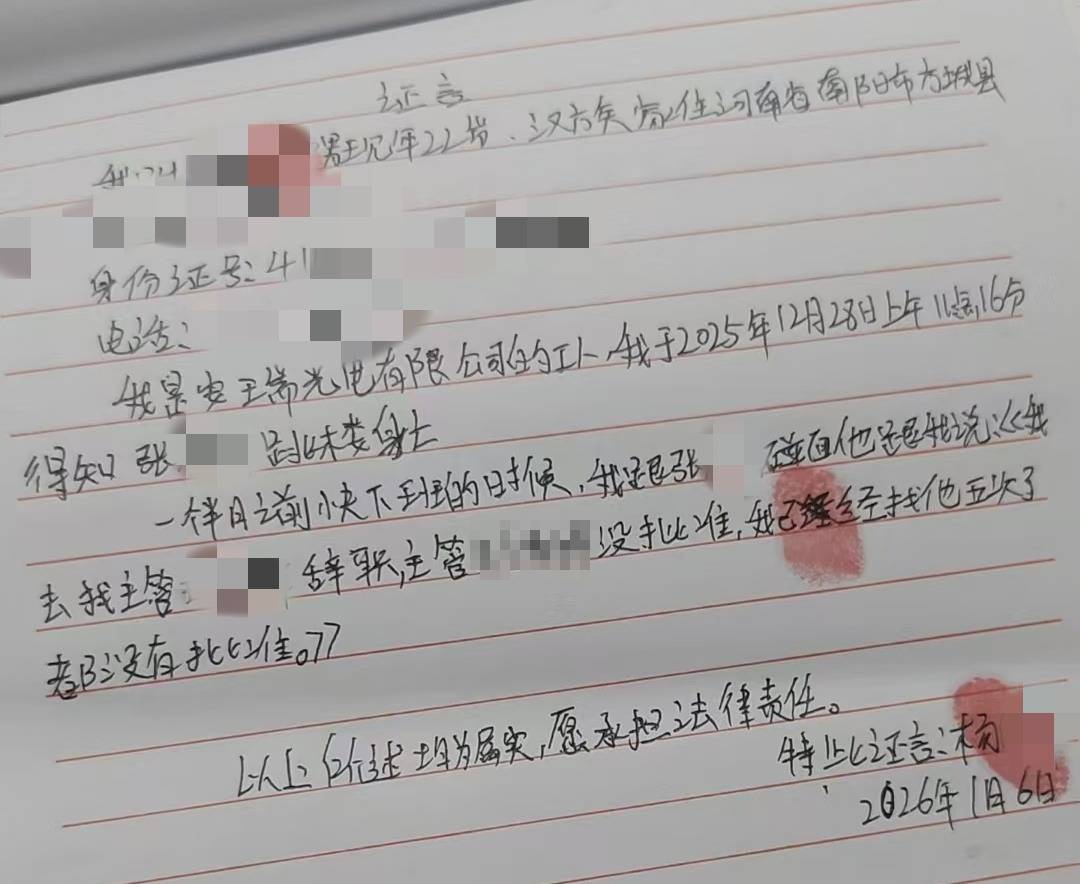 证言
我叫 男现年22岁、汉族家住河南省南阳市方城县
身份证号:41
电话:
我是安 瑞光电有限公司的工人,我于2025年12月28日上午11点16分
得知张 跳楼 身亡
一个半月之前 下班的时候,我跟张 碰面他跟我说:《我
去找主管 辞职,主管 没批准,我已经找他五次了
都没有批准。》
以上所述均为属实,愿承担法律责任。
特此证言:杨
2026年1月6日